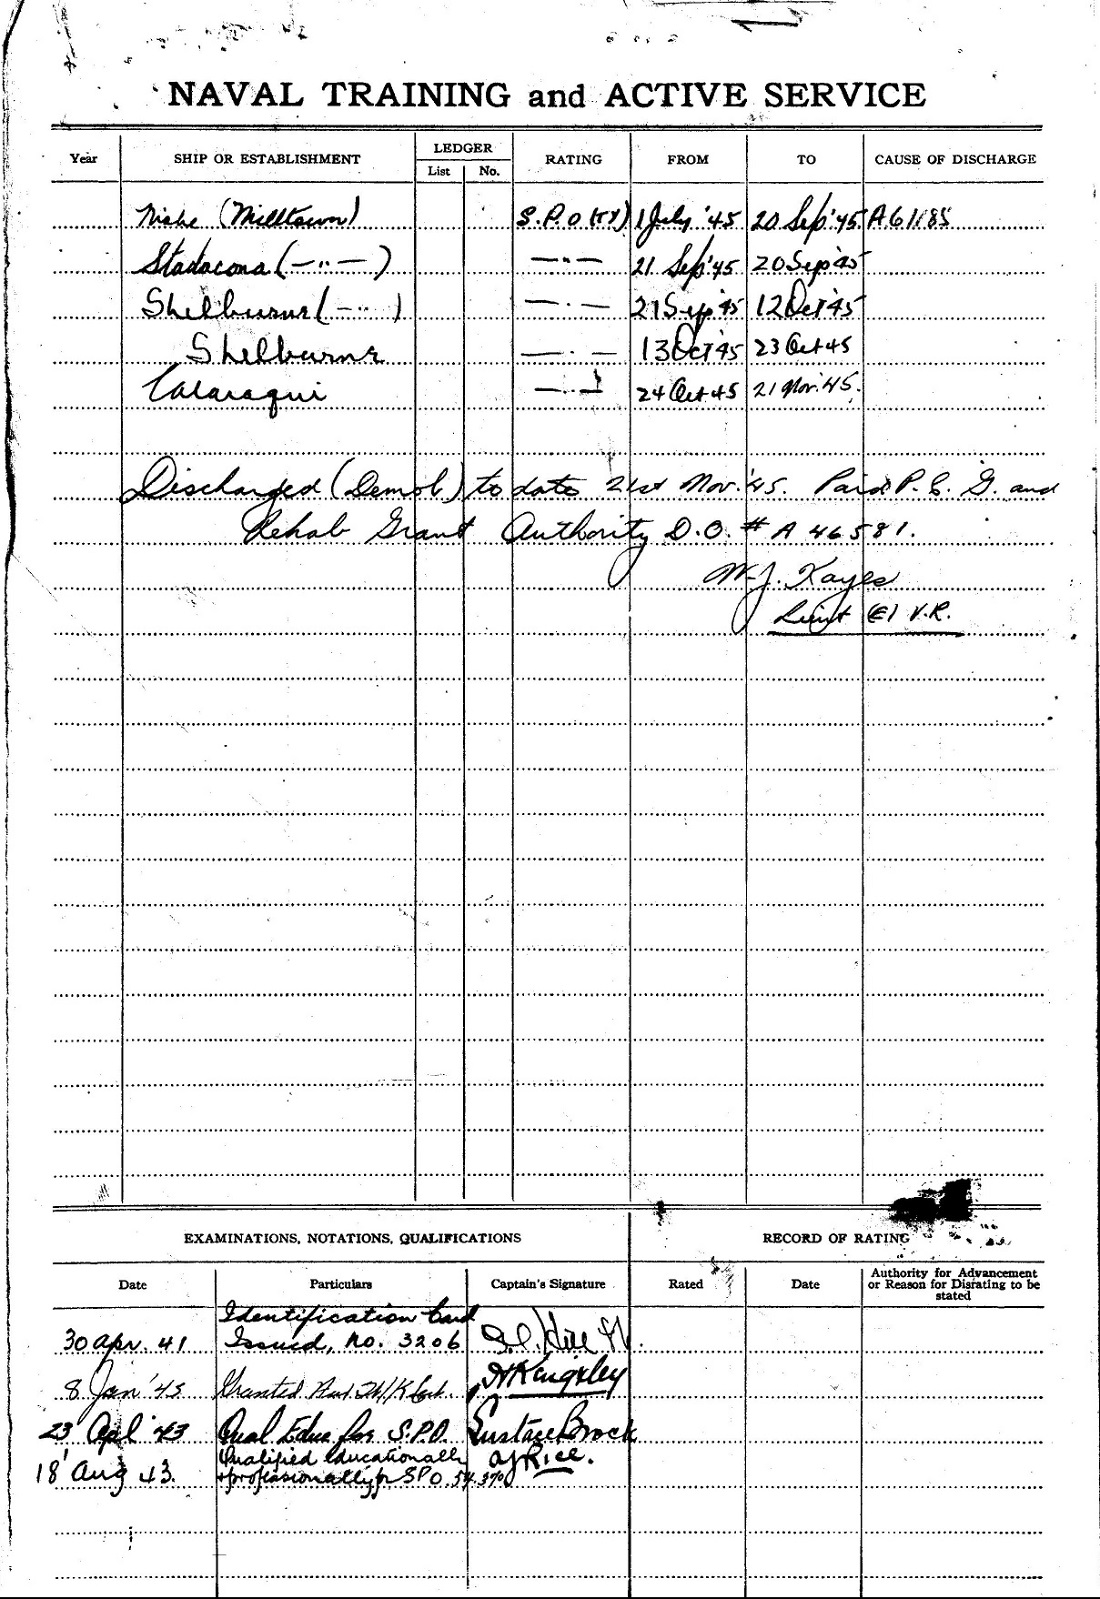 NAVAL TRAINING and ACTIVE SERVICE
Year SHIP OR ESTABLISHMENT LEDGER List No. RATING FROM TO CAUSE OF DISCHARGE
Niobe (Milltown) S.P.O (TY) 1 July '45 20 Sep '45 A61185
Stadacona ( —〃— ) —〃— 21 Sep '45 20 Sep '45
Shelburne ( —〃— ) —〃— 21 Sep '45 12 Oct '45
Shelburne —〃— 13 Oct '45 23 Oct 45
Cataraqui —〃— 24 Oct 45 21 Nov. '45.
Discharged (Demob) to date 21st Nov. '45. Paid P. C. G. and
Rehab Grant Authority D.O. # A 46581.
W.J. Kayes
Lieut (E) V.R.
EXAMINATIONS, NOTATIONS, QUALIFICATIONS RECORD OF RATING
Date Particulars Captain's Signature Rated Date Authority for Advancement or Reason for Disrating to be stated
Identification Card
30 Apr. 41 Issued, No. 3206
8 Jan '43 Granted H Kingsley
23 Apl '43 Qual Educ for S.P.O. Eustace Brock
Qualified educationally
18 Aug 43. + professionally for SPO. Rice.